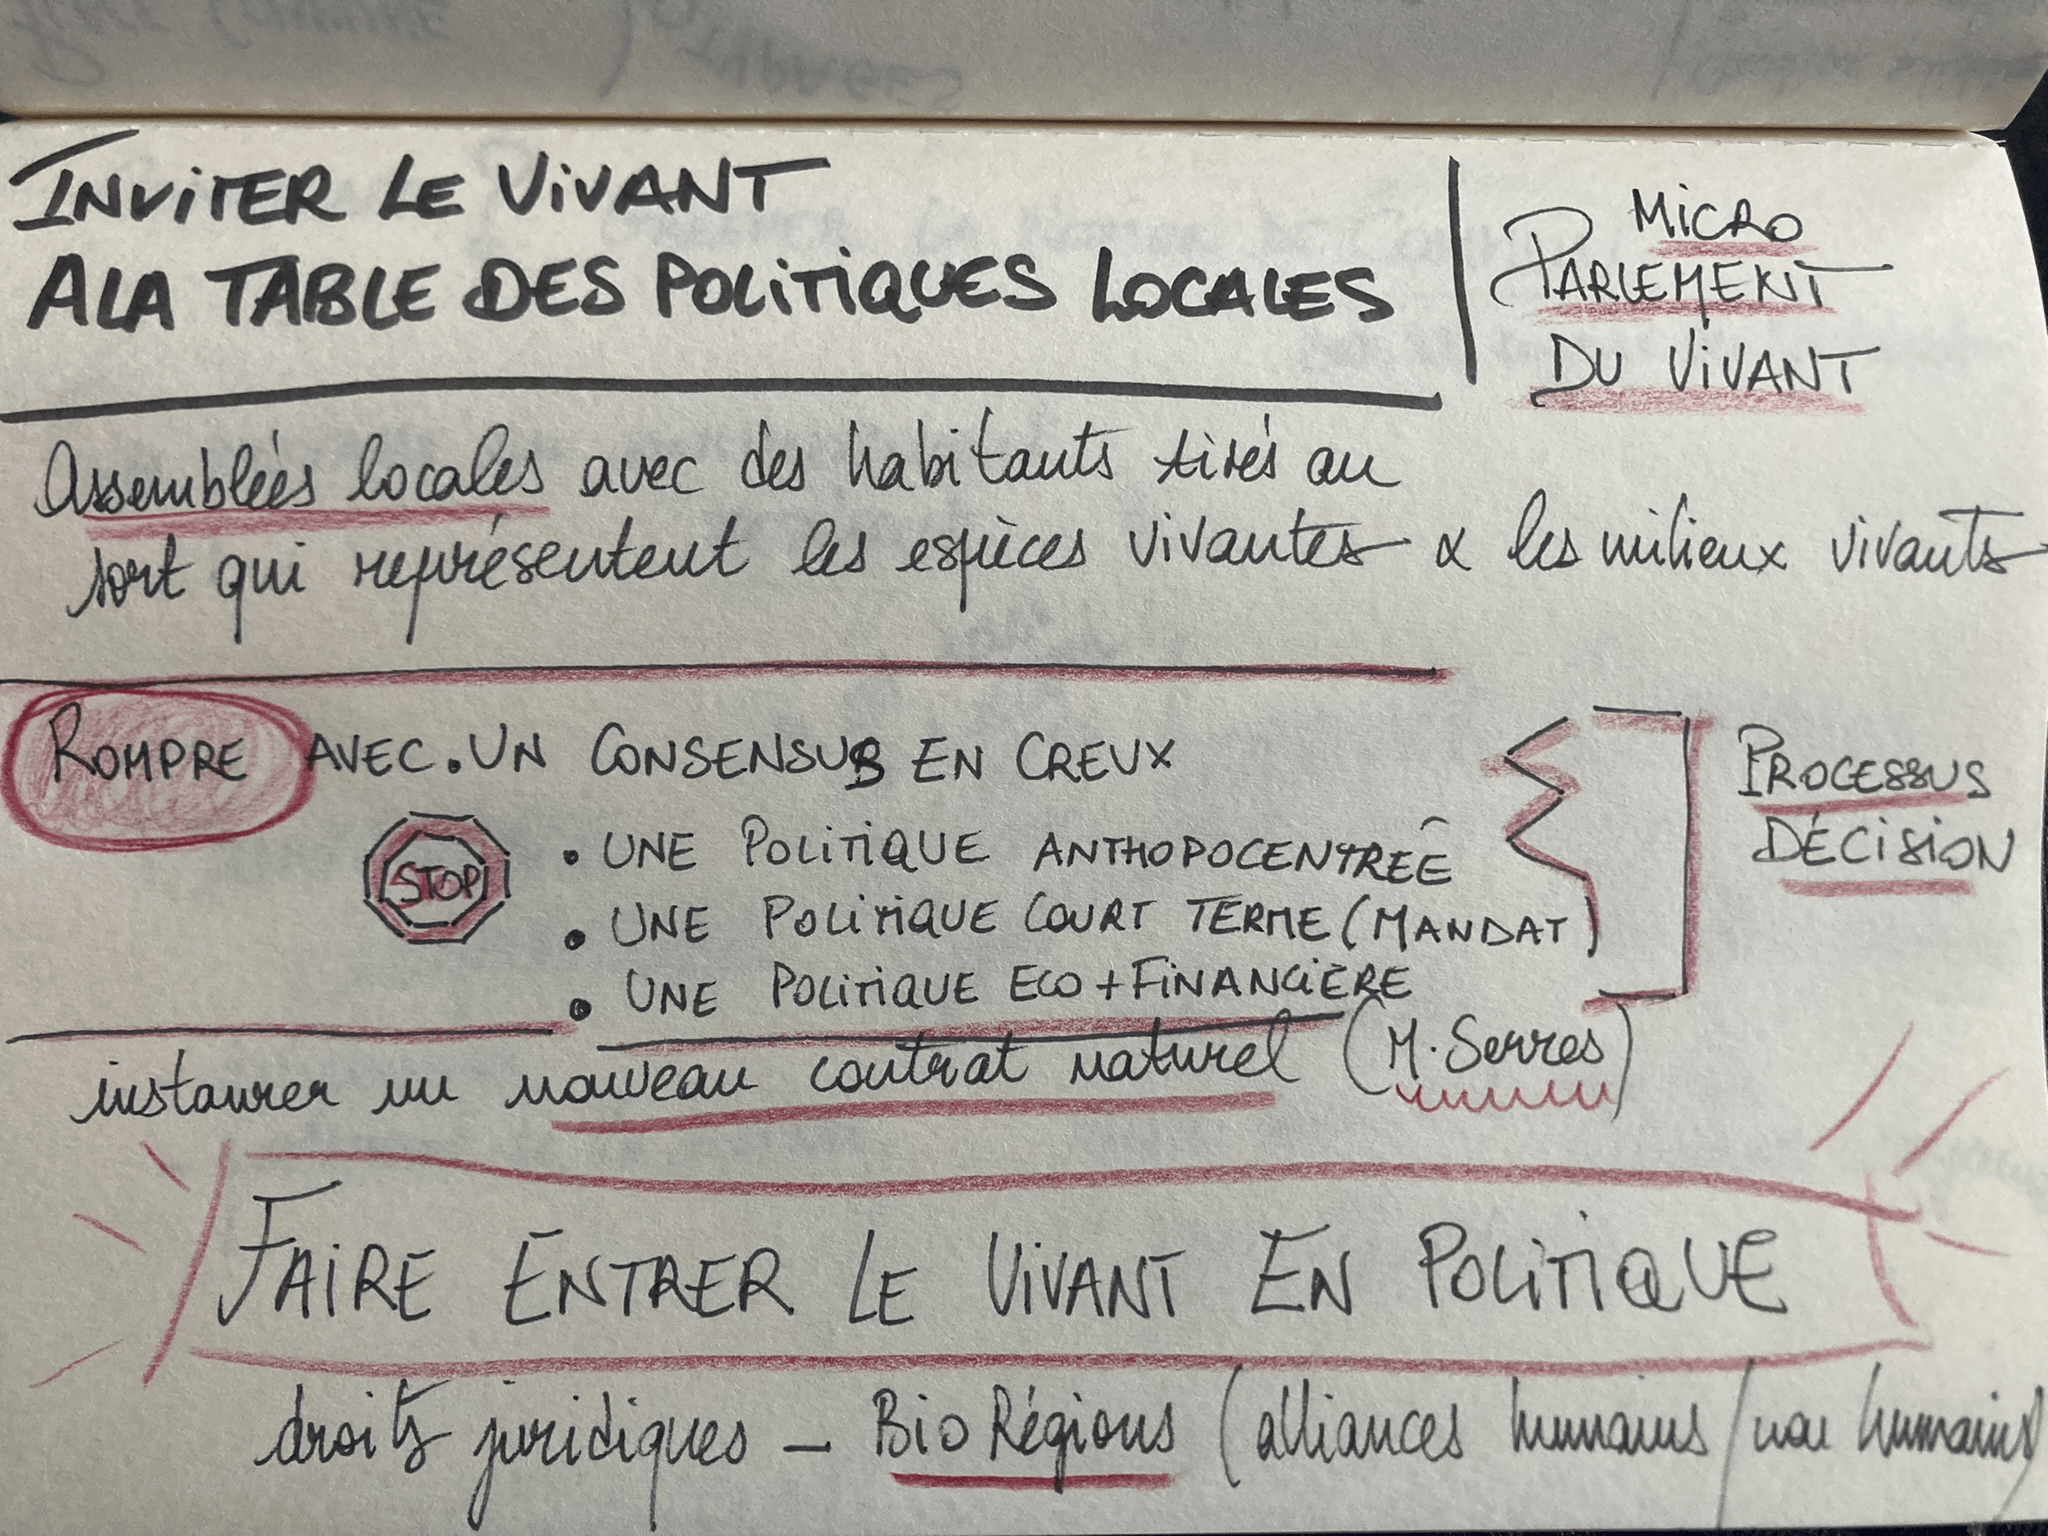 INVITER LE VIVANT
A LA TABLE DES POLITIQUES LOCALES
MICRO
PARLEMENT
DU VIVANT
Assemblées locales avec des habitants tirés au
sort qui représentent les espèces vivantes & les milieux vivants
ROMPRE AVEC . UN CONSENSUS EN CREUX
STOP
• UNE POLITIQUE ANTHOPOCENTREÊ
• UNE POLITIQUE COURT TERME (MANDAT)
• UNE POLITIQUE ECO + FINANCIÈRE
PROCESSUS
DÉCISION
instaurer un nouveau contrat naturel (M. Serres)
FAIRE ENTRER LE VIVANT EN POLITIQUE
droits juridiques – Bio Régions (alliances humains / non humains)